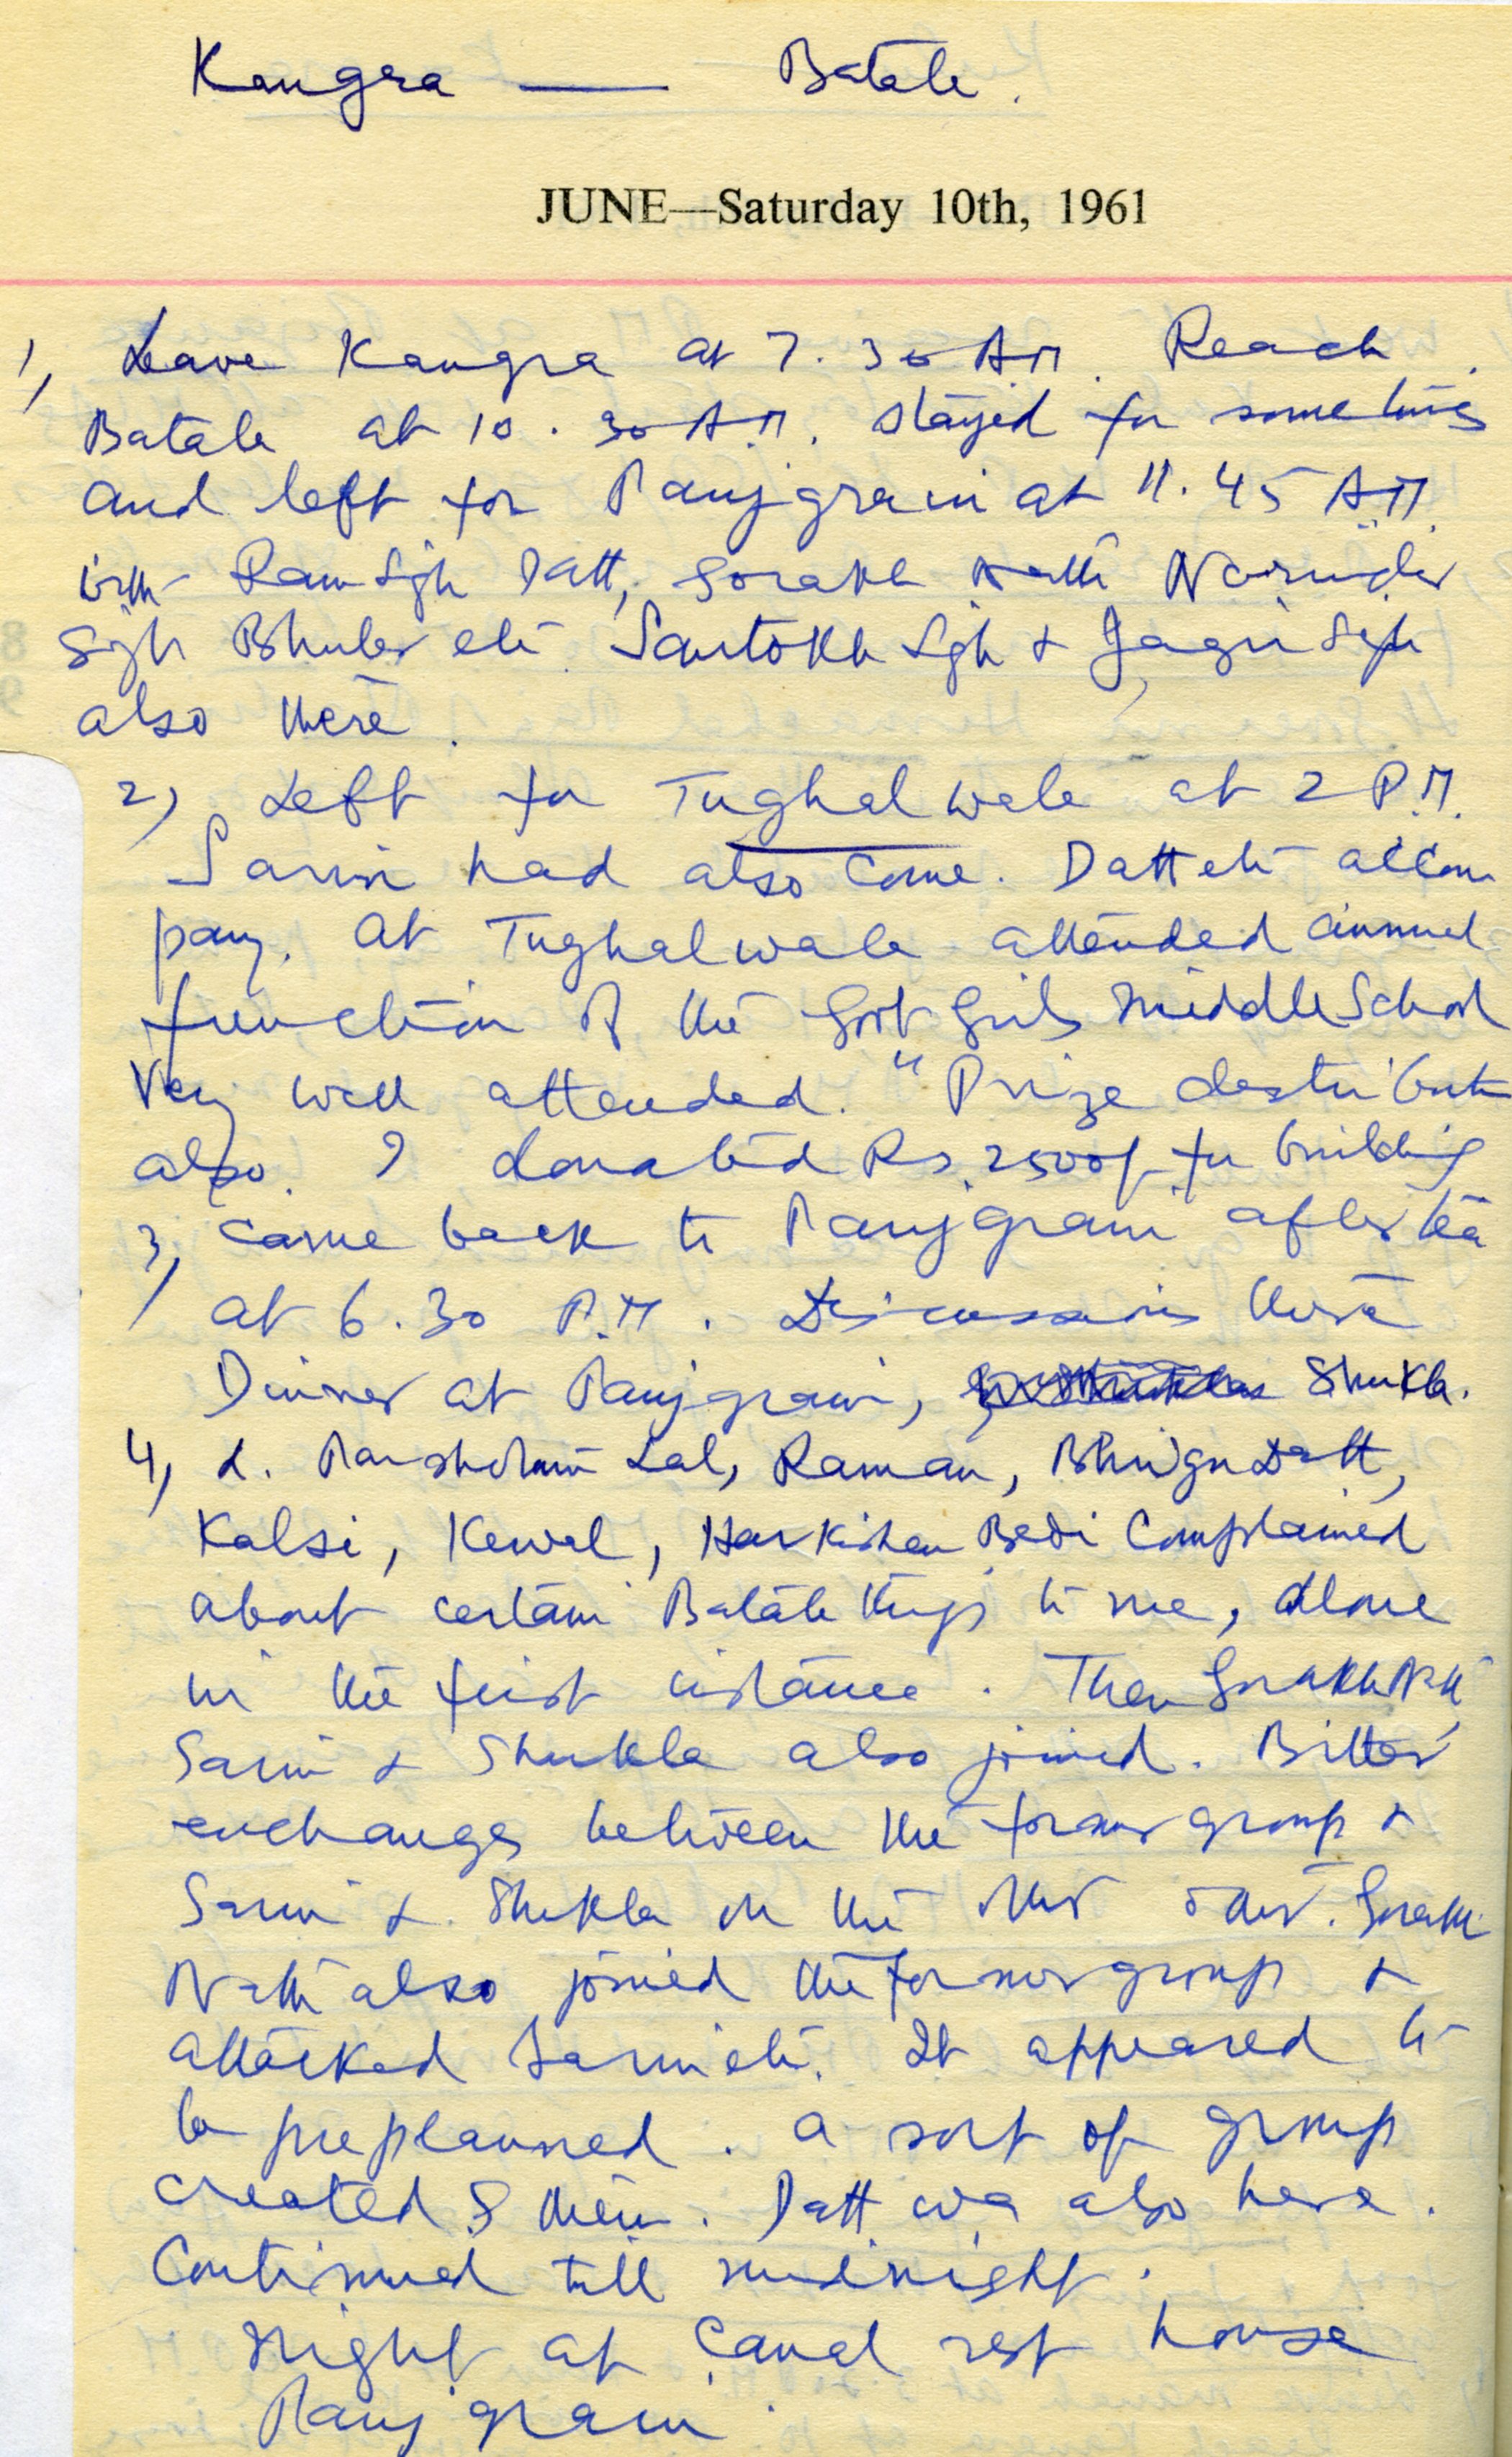 Kangra — Batala.
JUNE—Saturday 10th, 1961
1, Leave Kangra at 7.30 A.M. Reach
Batala at 10.30 A.M. Stayed for sometime
and left for Panjgrain at 11.45 A.M.
with Ram Sgh Datt, Gorakh Nath Narinder
Sgh Bhuler etc. Santokh Sgh & Jagir Sgh
also there.
2, Left for Tughalwala at 2 P.M.
Sarin had also come. Datt etc accom
pany. At Tughalwala attended annual
function of the Govt Girls Middle School
Very well attended. Prize distribution
also. I donated Rs. 2500/- for building
3, Came back to Panjgrain after tea
at 6.30 P.M. Discussions there
Dinner at Panjgrain, Shukla.
4, L. Parshotam Lal, Raman, Bhrigu Datt,
Kalsi, Kewal, Harkishan Bedi Complained
about certain Batala things to me, alone
in the first instance. Then Gorakh Nath,
Sarin & Shukla also joined. Bitter
exchanges between the former group &
Sarin & Shukla on the other. Gorakh
Nath also joined the former group &
attacked Sarin etc. It appeared to
be preplanned. A sort of group
created them. Datt was also here.
Continued till midnight.
Night at Canal rest house
Panjgrain.